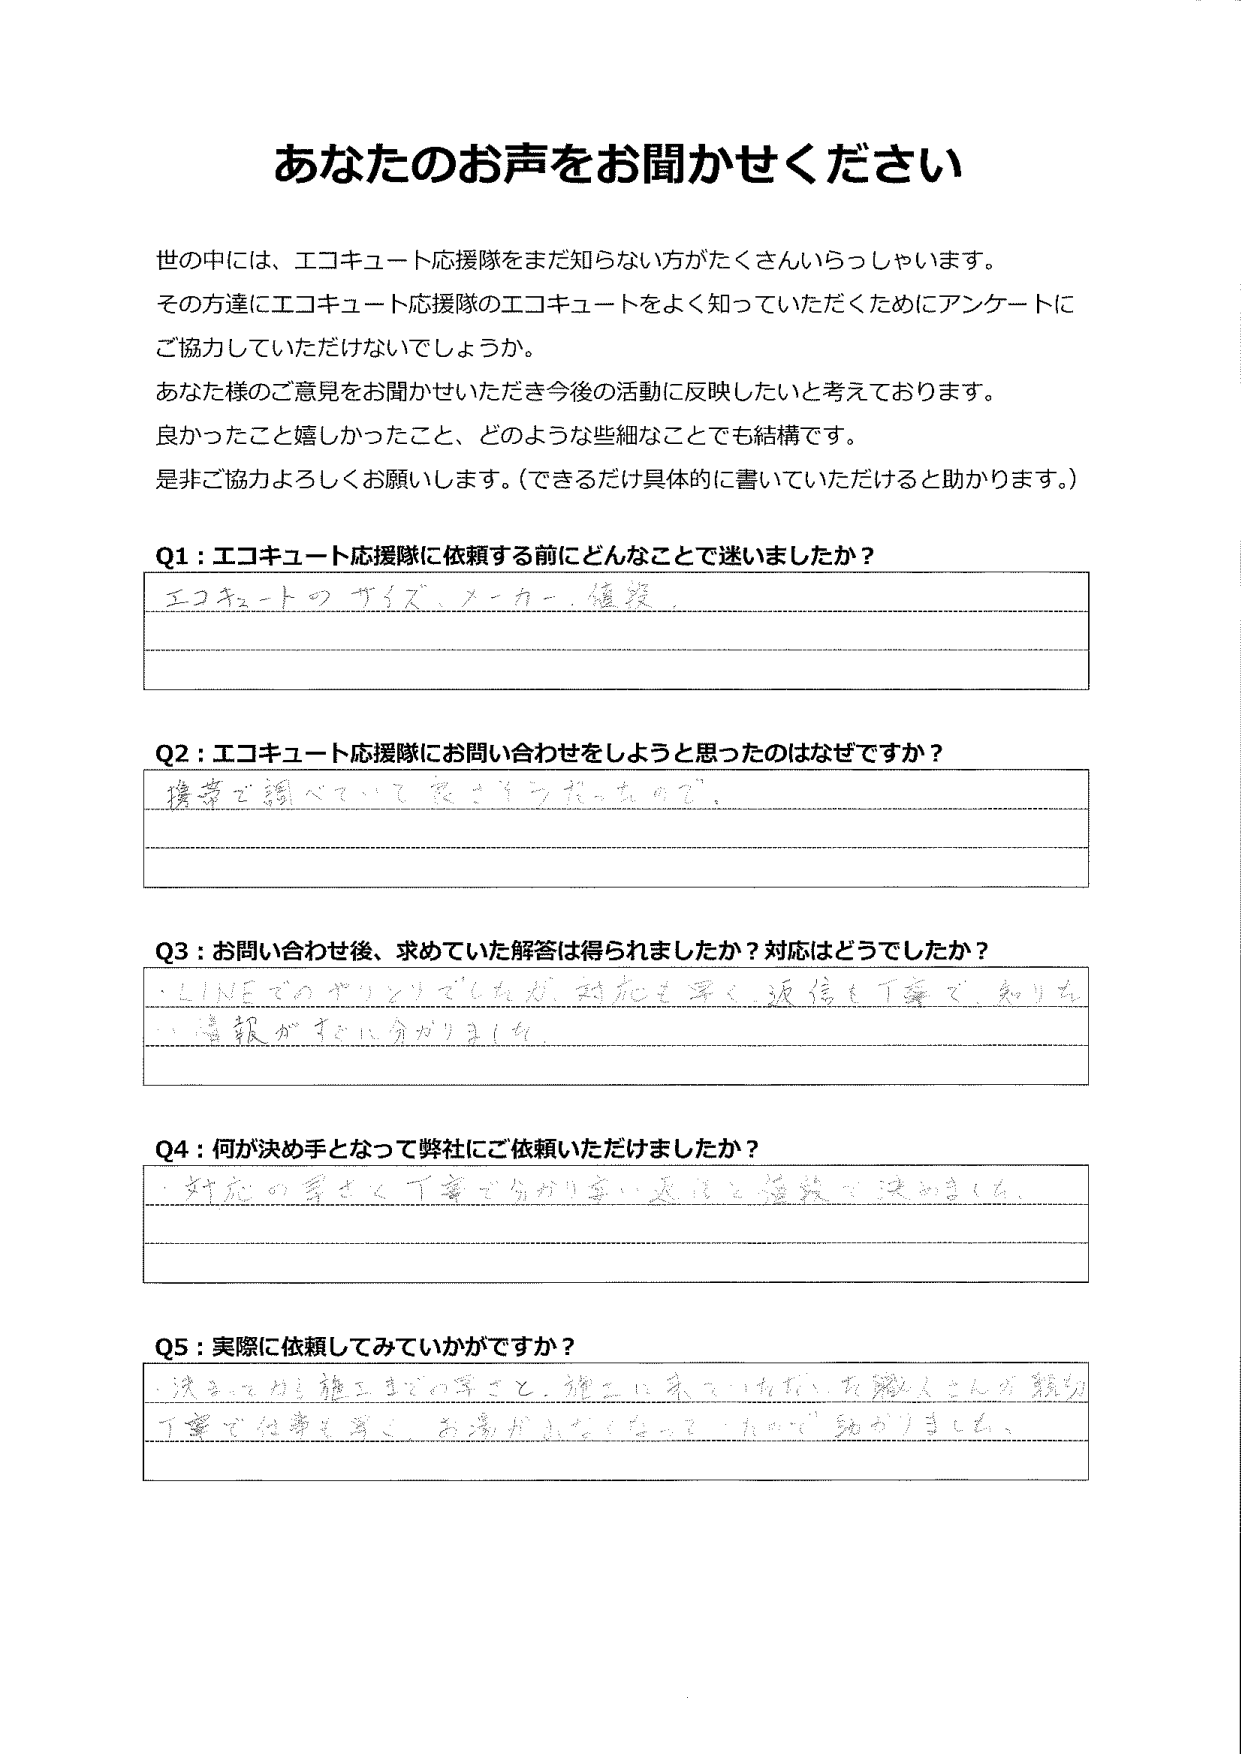 あなたのお声をお聞かせください
世の中には、エコキュート応援隊をまだ知らない方がたくさんいらっしゃいます。
その方達にエコキュート応援隊のエコキュートをよく知っていただくためにアンケートに
ご協力していただけないでしょうか。
あなた様のご意見をお聞かせいただき今後の活動に反映したいと考えております。
良かったこと嬉しかったこと、どのような些細なことでも結構です。
是非ご協力よろしくお願いします。（できるだけ具体的に書いていただけると助かります。）
Q1：エコキュート応援隊に依頼する前にどんなことで迷いましたか？
エコキュートのサイズ、メーカー、値段、
Q2：エコキュート応援隊にお問い合わせをしようと思ったのはなぜですか？
携帯で調べていて良さそうだったので。
Q3：お問い合わせ後、求めていた解答は得られましたか？対応はどうでしたか？
・LINEでのやりとりでしたが、対応も早く返信も丁寧で、知りた
い情報がすぐに分かりました。
Q4：何が決め手となって弊社にご依頼いただけましたか？
・対応の早さと丁寧で分かり易い返信と値段で決めました。
Q5：実際に依頼してみていかがですか？
・決まってから施工までの早さと、施工に来ていただいた職人さんが親切
丁寧で仕事も早く、お湯が出なくなっていたので助かりました。